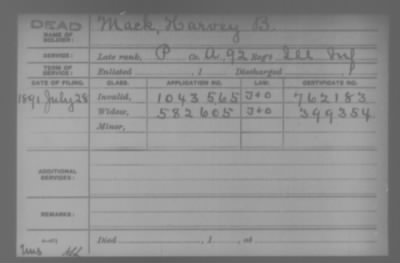 DEAD
NAME OF SOLDIER: Mack, Harvey B.
SERVICE: Late rank, P Co. A, 92 Reg't Ill Inf
TERM OF SERVICE: Enlisted , 1 Discharged , 1
DATE OF FILING. CLASS. APPLICATION NO. LAW. CERTIFICATE NO.
1891 July 28 Invalid, 1043565 J+O 762183
Widow, 582605 J+O 399354
Minor,
ADDITIONAL SERVICES:
REMARKS:
Died , 1 , at